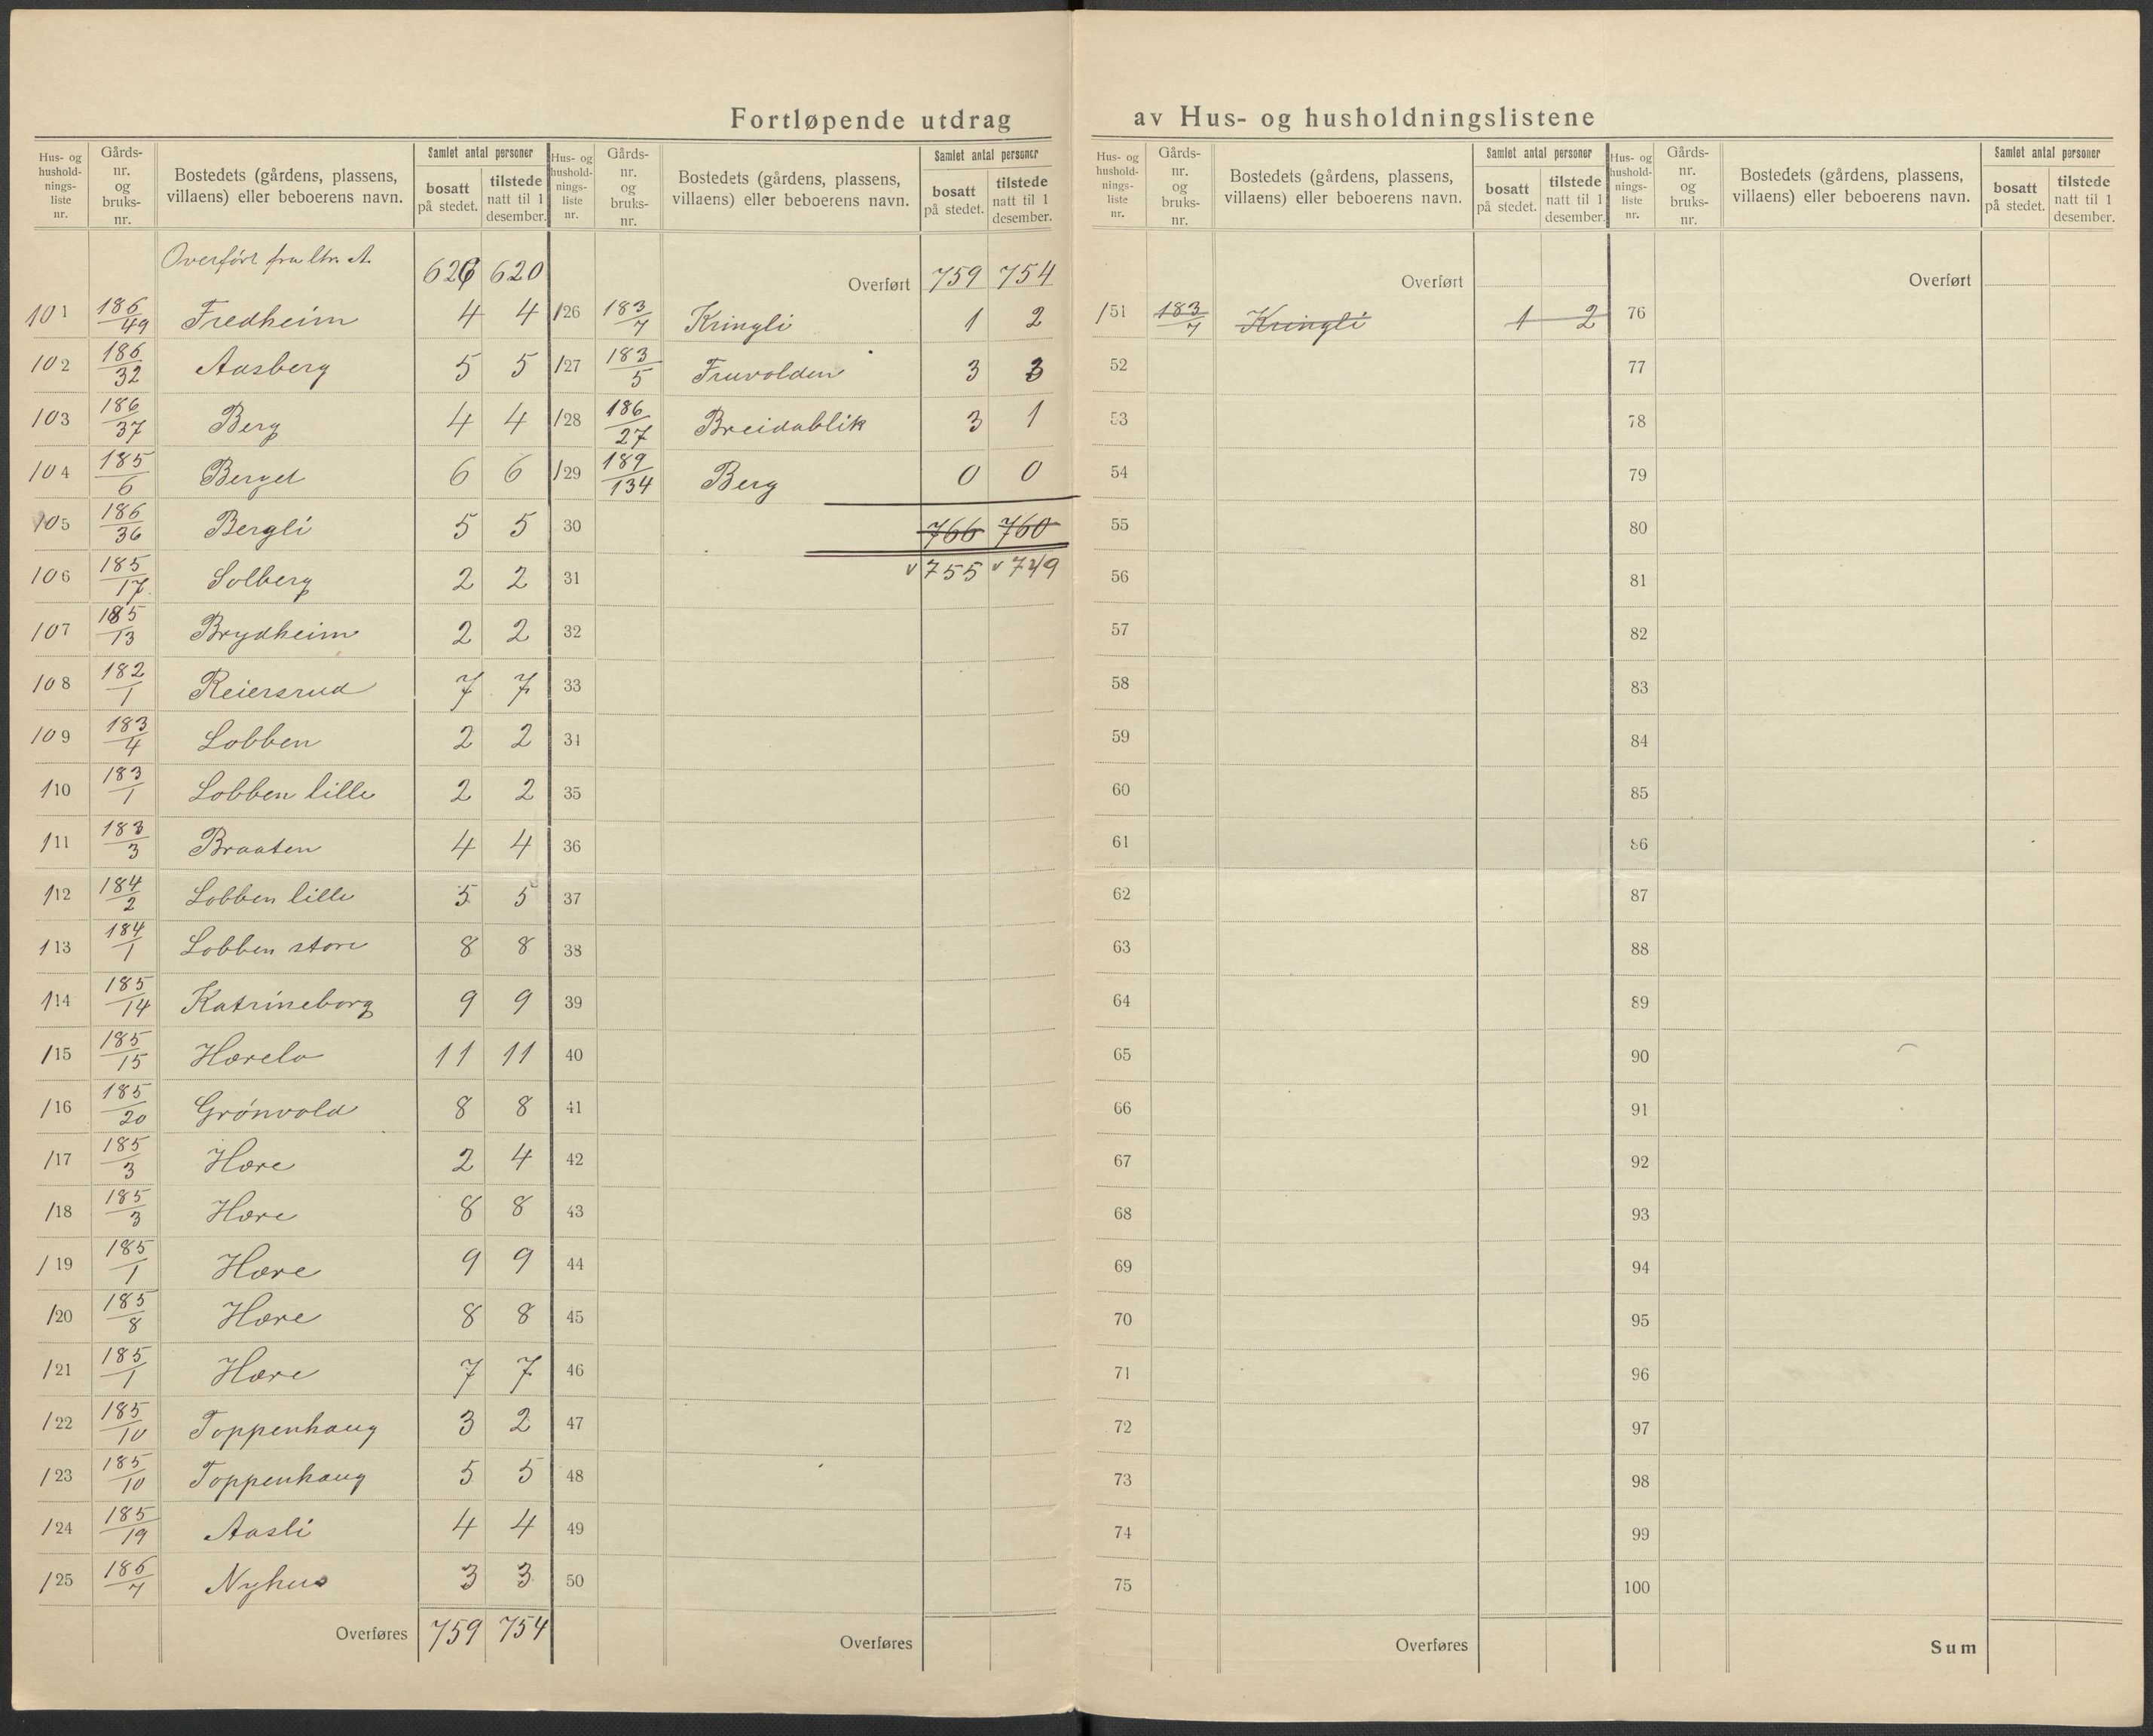 Fortløpende utdrag av Hus- og husholdningslistene
Hus- og hushold-nings-liste nr. Gårds-nr. og bruks-nr. Bostedets (gårdens, plassens, villaens) eller beboerens navn. Samlet antal personer bosatt på stedet. tilstede natt til 1 desember.
Overført fra 626 620
101 186/49 Fredheim 4 4
102 186/32 Aasberg 5 5
103 186/37 Berg 4 4
104 185/6 Berget 6 6
105 186/36 Bergli 5 5
106 185/17 Solberg 2 2
107 185/13 Brydheim 2 2
108 182/1 Reiersrud 7 7
109 183/4 Lobben 2 2
110 183/1 Lobben lille 2 2
111 183/3 Braaten 4 4
112 184/2 Lobben lille 5 5
113 184/1 Lobben store 8 8
114 185/14 Katrineborg 9 9
115 185/15 Hærelo 11 11
116 185/20 Grönvold 8 8
117 185/3 Hære 2 4
118 185/3 Hære 8 8
119 185/1 Hære 9 9
120 185/8 Hære 8 8
121 185/1 Hære 7 7
122 185/10 Toppenhaug 3 2
123 185/10 Toppenhaug 5 5
124 185/19 Aasli 4 4
125 186/7 Nyhus 3 3
Overføres 759 754
Hus- og hushold-nings-liste nr. Gårds-nr. og bruks-nr. Bostedets (gårdens, plassens, villaens) eller beboerens navn. Samlet antal personer bosatt på stedet. tilstede natt til 1 desember.
Overført 759 754
126 183/7 Kringli 1 2
127 183/5 Fruvolden 3 3
128 186/27 Breidablik 3 1
129 189/134 Berg 0 0
30 766 760
31 v 755 v 749
32
33
34
35
36
37
38
39
40
41
42
43
44
45
46
47
48
49
50
Overføres
Hus- og hushold-nings-liste nr. Gårds-nr. og bruks-nr. Bostedets (gårdens, plassens, villaens) eller beboerens navn. Samlet antal personer bosatt på stedet. tilstede natt til 1 desember.
Overført
151 183/7 Kringli 1 2
52
53
54
55
56
57
58
59
60
61
62
63
64
65
66
67
68
69
70
71
72
73
74
75
Overføres
Hus- og hushold-nings-liste nr. Gårds-nr. og bruks-nr. Bostedets (gårdens, plassens, villaens) eller beboerens navn. Samlet antal personer bosatt på stedet. tilstede natt til 1 desember.
Overført
76
77
78
79
80
81
82
83
84
85
86
87
88
89
90
91
92
93
94
95
96
97
98
99
100
Sum